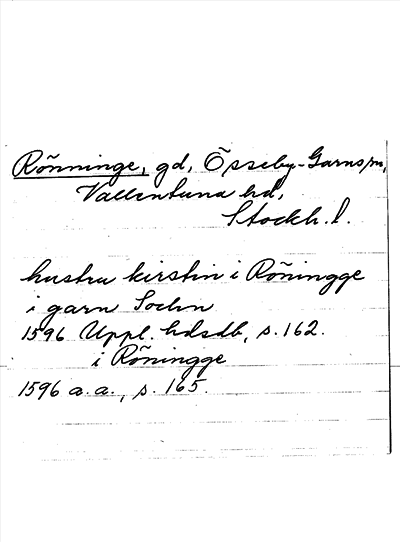 Rönninge, gd, Össeby-Garns sn,
Vallentuna hd,
Stockh. l.
hustru kirstin i Röningge
i garn Sochn
1596 Uppl. hdsdb, s. 162.
i Röningge
1596 a.a., s. 165.